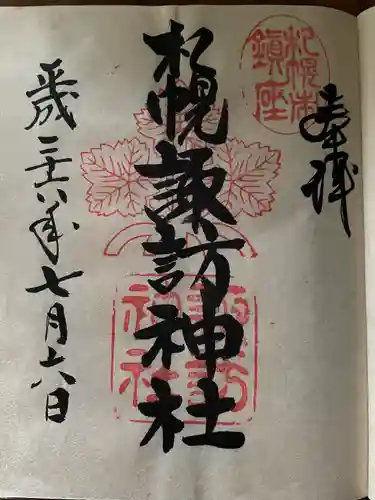 奉拝
札幌市鎮座
札幌諏訪神社
諏訪神社
平成二十八年七月六日